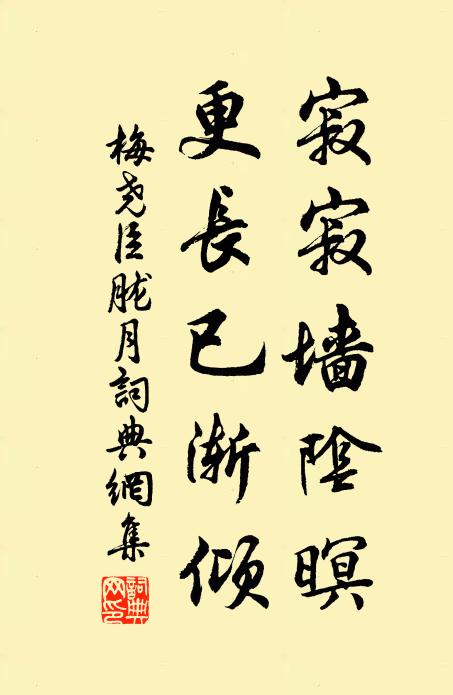 寂寂墙陰暝
更長已漸傾
梅尧臣朧月詞典網集
詞典网印